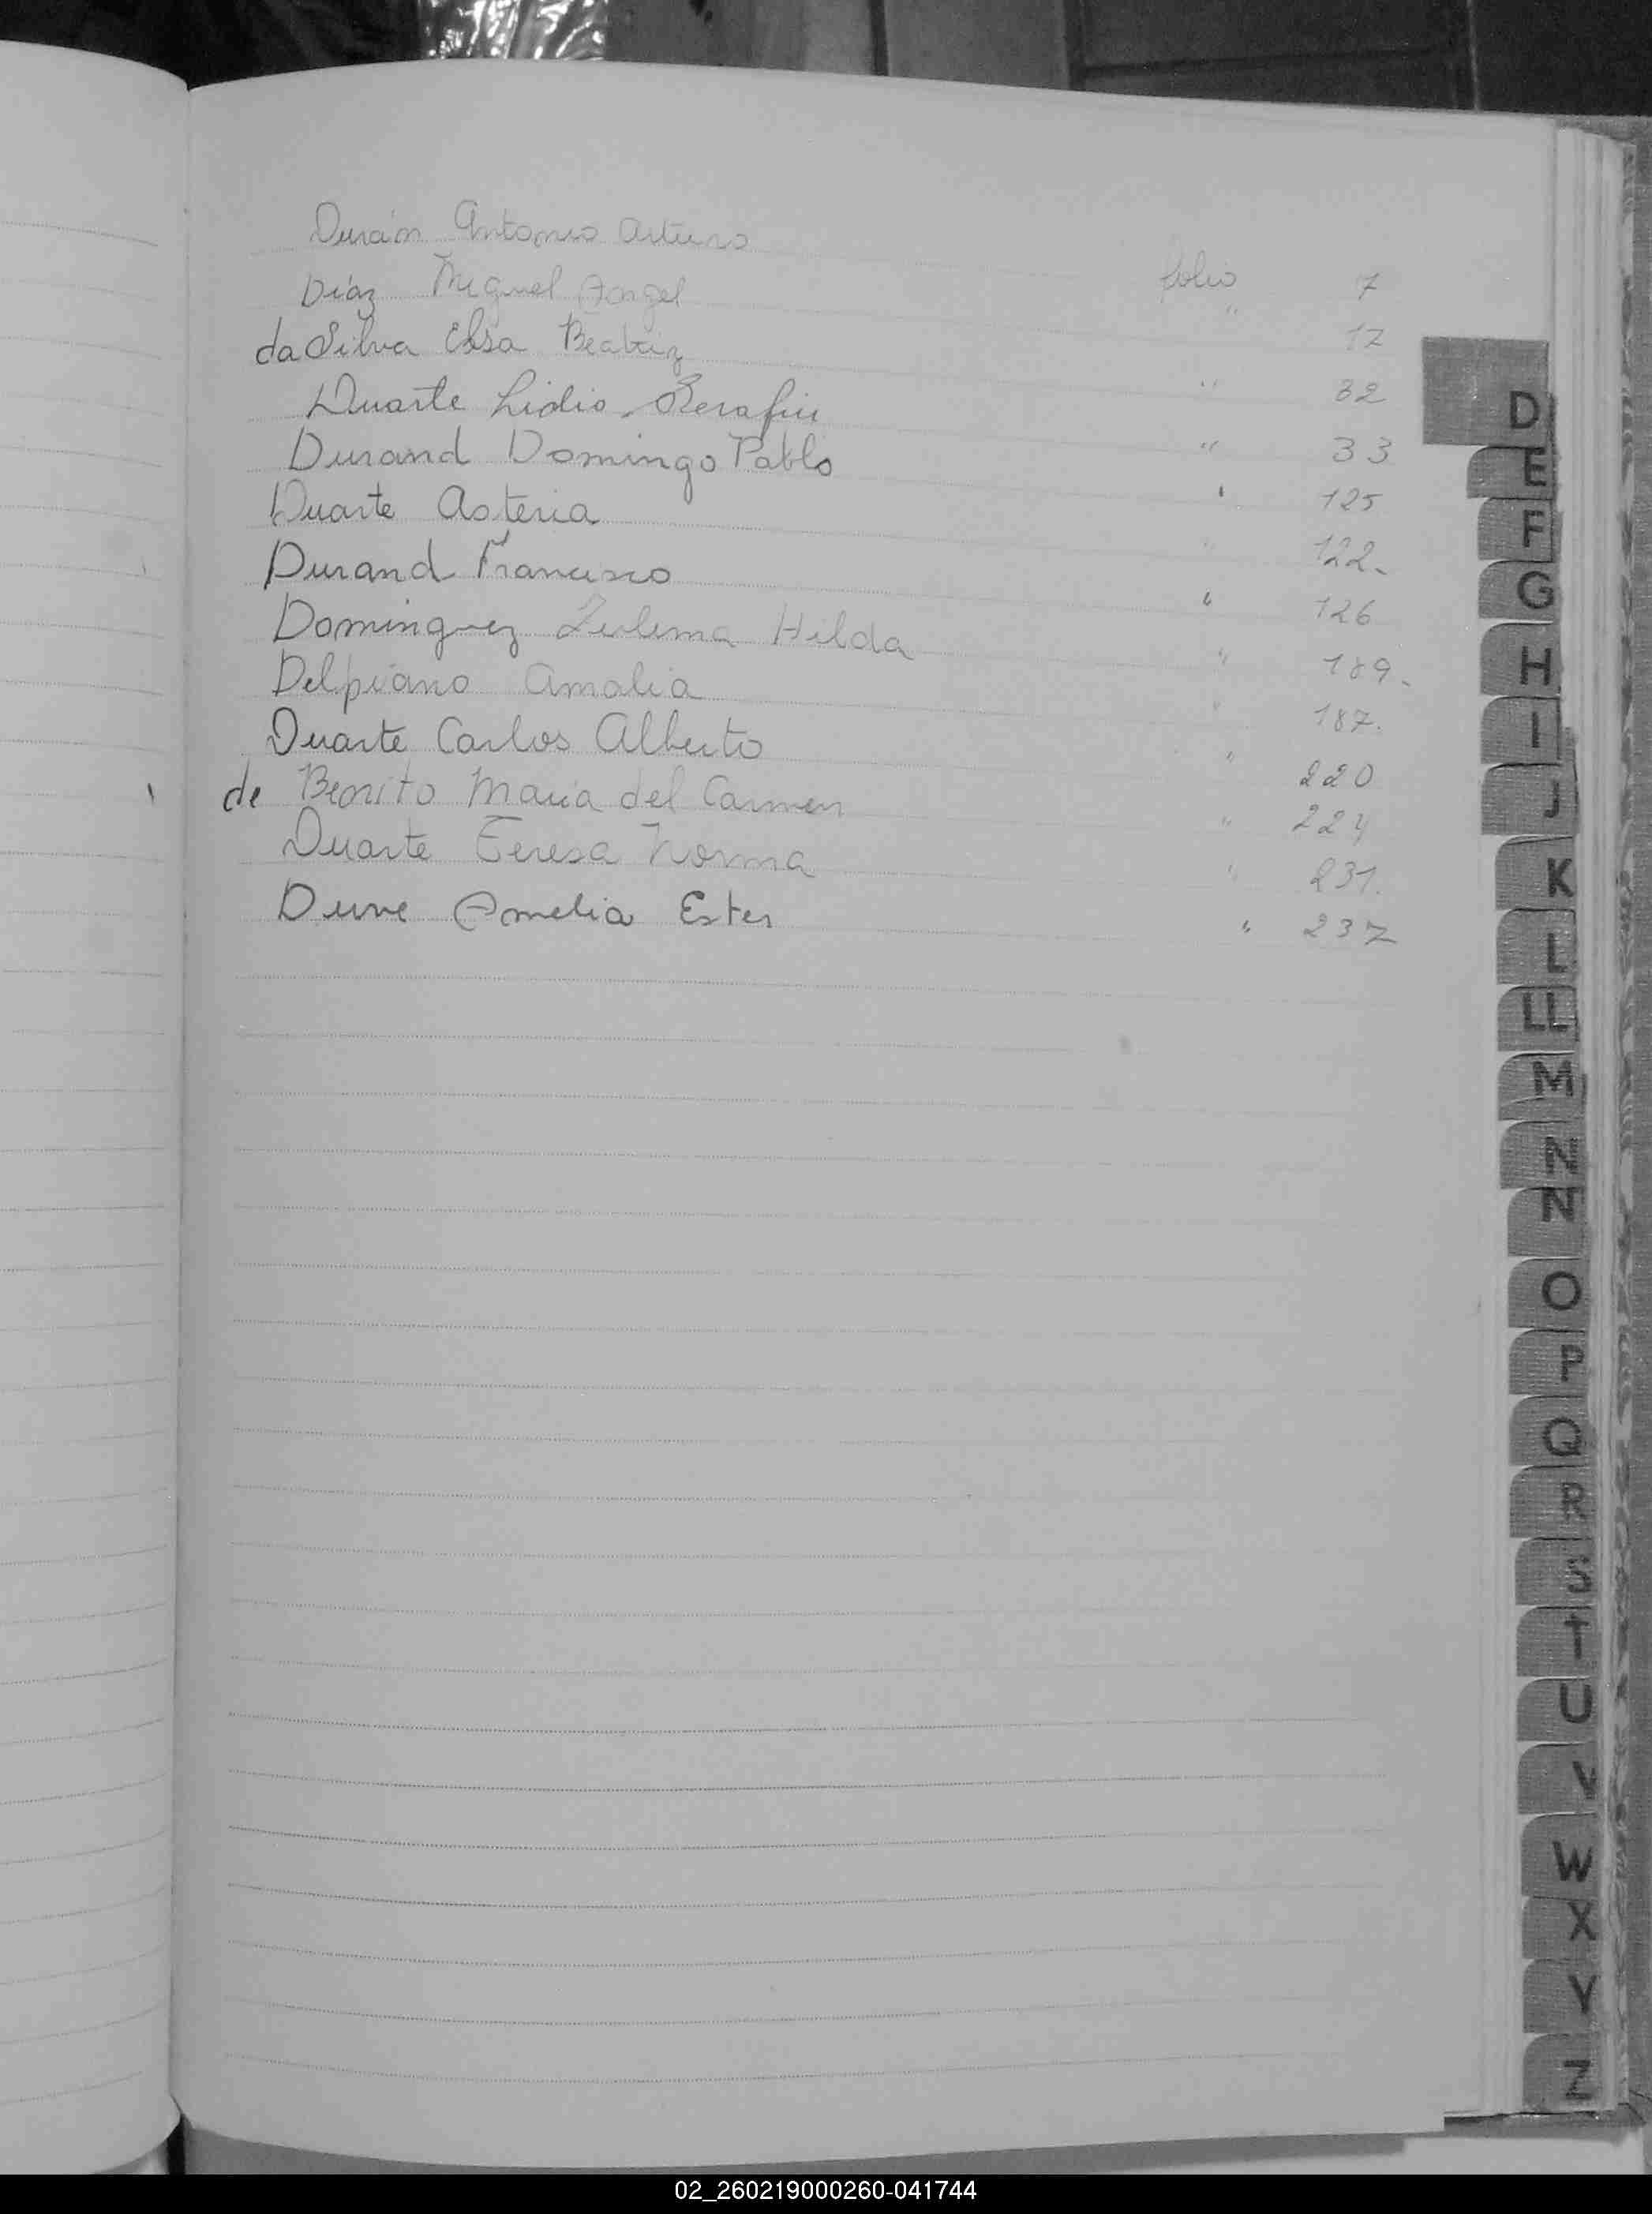 Durán Antonio Arturo folio 7
Díaz Miguel Angel " 17
da Silva Elsa Beatriz " 32
Duarte Lidio Serafin " 33
Durand Domingo Pablo " 125
Duarte Asteria " 122-
Durand Francisco " 126
Dominguez Zulema Hilda " 189-
Delpiano Amalia " 187.
Duarte Carlos Alberto " 220
de Benito Maria del Carmen " 224
Duarte Teresa Norma " 231.
Amelia Ester " 237
D
E
F
G
H
I
J
K
L
LL
M
N
Ñ
O
P
Q
R
S
T
U
V
W
X
Y
Z
02_260219000260-041744